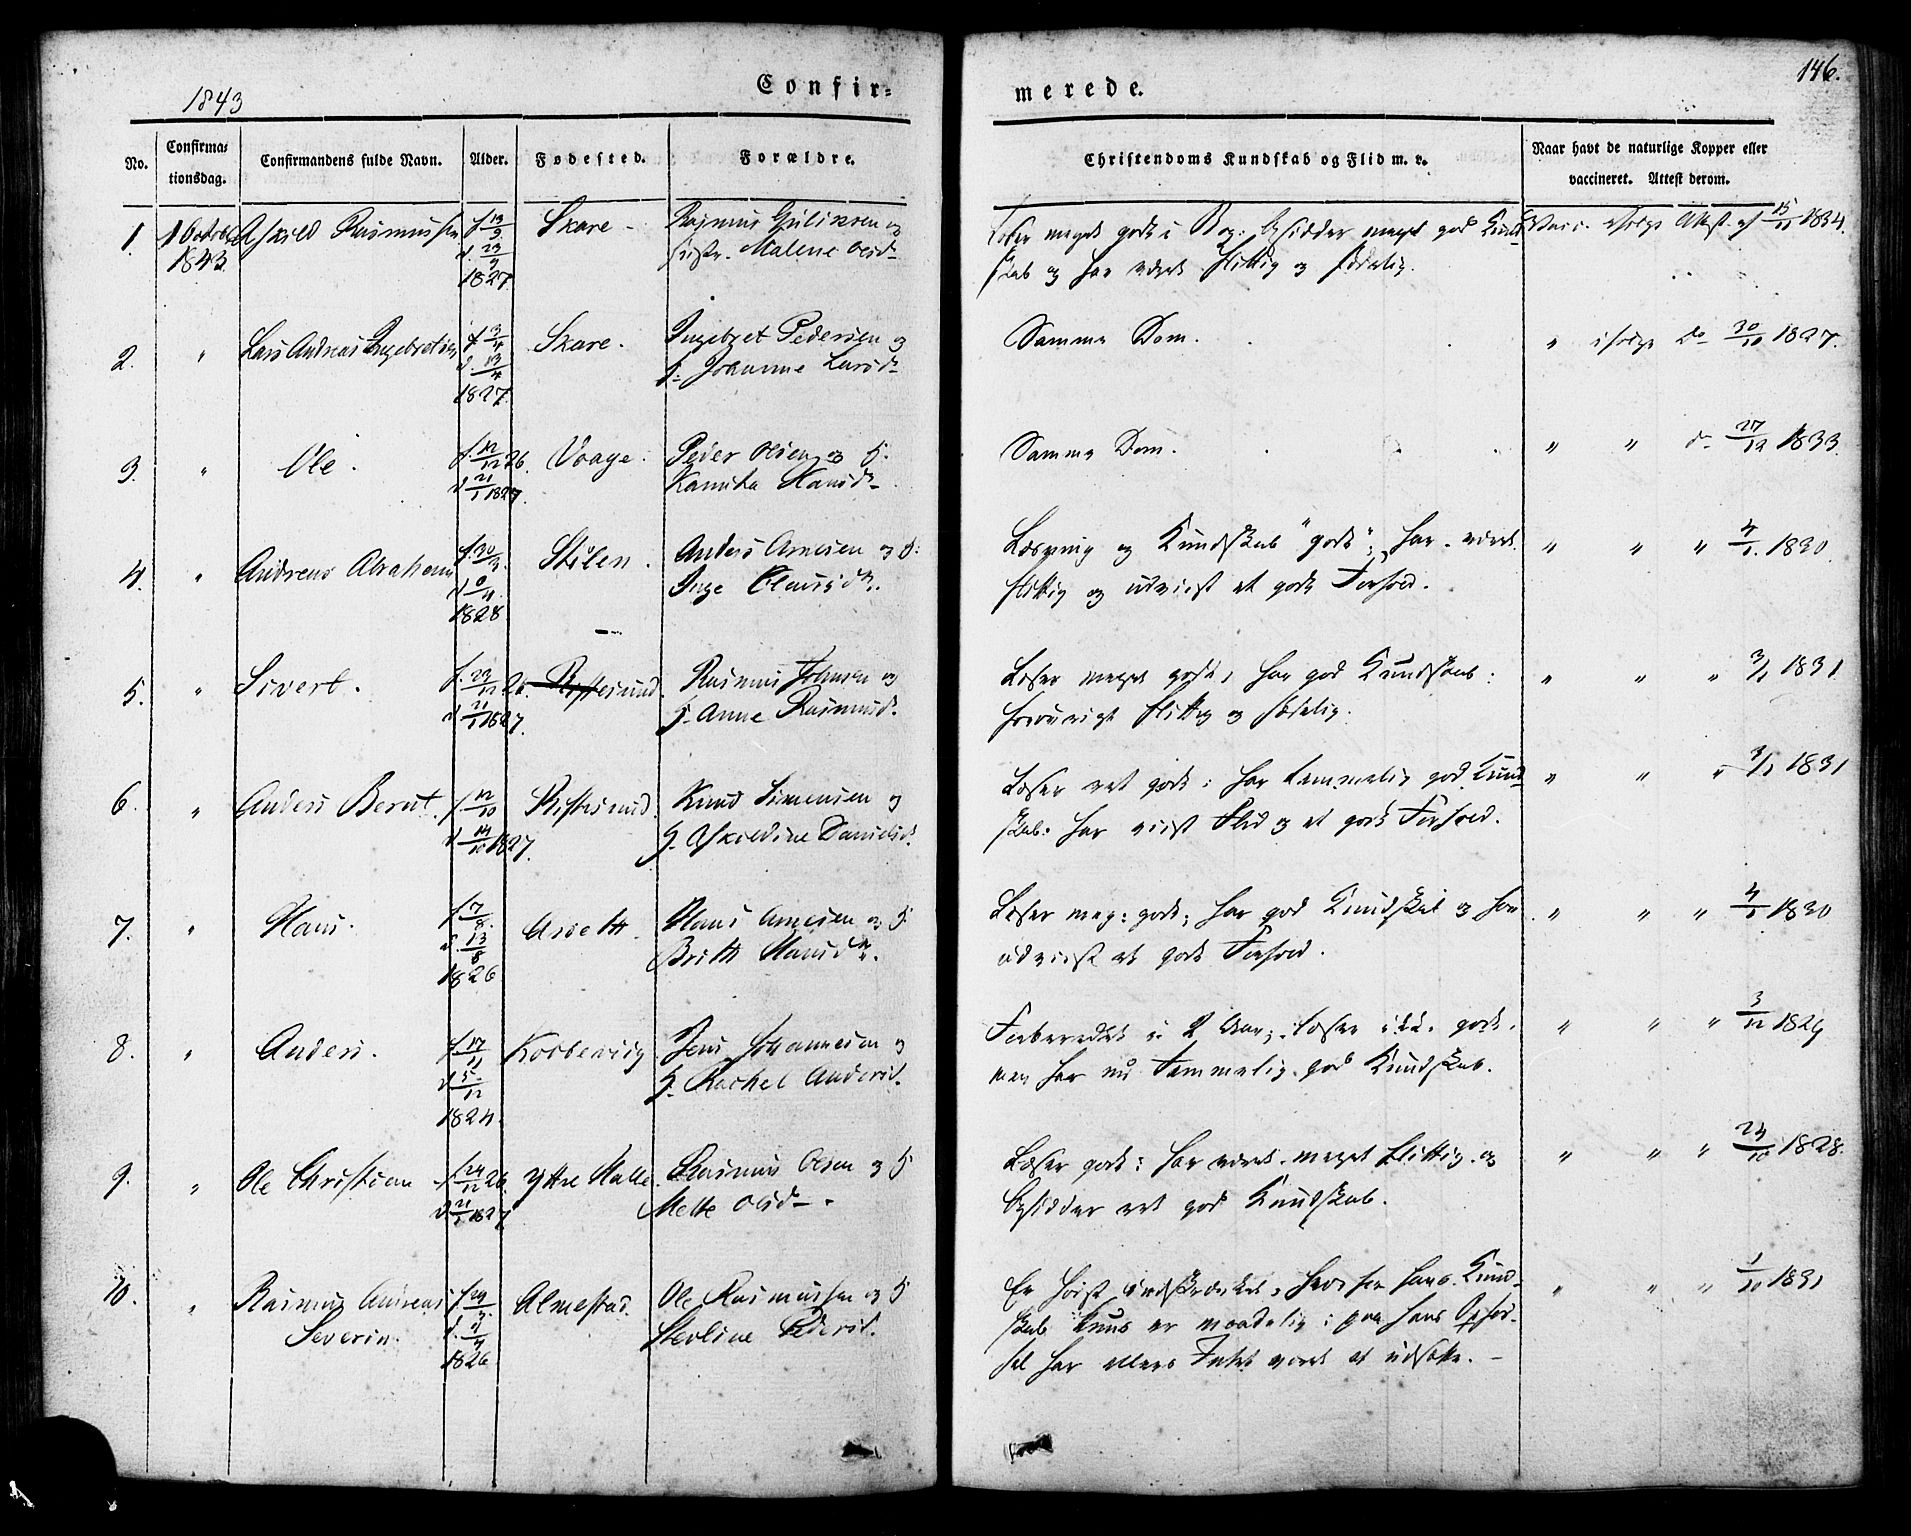 146.
1843
Confir=
merede.
No.
Confirma=
tionsdag.
Confirmandens fulde Navn.
Alder.
Fødested.
Forældre.
Christendoms Kundskab og Flid m. v.
Naar havt de naturlige Kopper eller
vaccineret. Attest derom.
1.
1 October
1843.
Askild Rasmussen
f. 13/9
d. 23/9
1827
Skare
Rasmus
Malene Olsd
Læser meget godt i Bog: besidder meget god Kund-
skab og har været flittig og sædelig.
Vacc. ifølge Attest af 15/11 1834.
2.
"
Lars Andreas Ingebretsen
f. 3/4
d. 13/4
1827.
Skare.
Ingebret Pedersen og
H. Johanne Larsd
Samme Dom.
" ifølge do 30/10 1827.
3.
"
Ole.
f. 12/12 26.
d. 21/1 1827.
Vaage.
Peder Olsen og H.
Hansd
Samme Dom.
" " do 27/12 1833.
4.
"
Andreas Abraham
f. 30/3.
1828
Anders Arnesen og H:
Inge Clausd.
Læsning og Kundskab "godt"; har været
flittig og udviist et godt Forhold.
" " " 4/1 1830
5.
"
Sivert.
f. 23/12 26.
d. 21/1 1827.
Ristesund.
Rasmus Johnsen og
H. Anne Rasmusd.
Læser meget godt, har god Kundskab:
forøvrigt flittig og sædelig.
" " " 3/1 1831
6.
"
Anders Bernt.
f. 12/10
d. 14/10 1827.
Ristesund.
Knud Simensen og
H. Askeldine Danielsd.
Læser ret godt: har temmelig god Kund-
skab: har viist Flid og et godt Forhold.
" " " 3/1 1831
7.
"
Hans.
f. 7/8.
d. 13/8
1826
Arseth.
Hans Arnesen og H.
Brith Hansd.
Læser meg: godt; har god Kundskab og har
udviist et godt Forhold.
" " " 4/1 1830
8.
"
Anders.
f. 17/11
d. 5/12
1824.
Korsbevig
Jens Johannesen og
H. Rachel Andersd.
Forberedet i 2 Aar; læser godt,
men har nu temmelig god Kundskab.
" " " 3/12 1829
9.
"
Ole Christian
f. 24/12 26.
d. 21/1 1827
Yttre Halle.
Rasmus Olsen og H
Mette Olsd
Læser godt: har været meget flittig og
besidder ret god Kundskab.
" " " 24/10 1828.
10.
"
Rasmus Andreas
Severin.
f. 24/3.
1826
Almestad.
Ole Rasmussen og H
Stevline Pedersd.
Er høist indskrænket, hvorfor hans Kund-
skab kuns er maadelig: paa hans Opfør-
sel har ellers Intet været at udsætte. –
" " " 1/10 1831